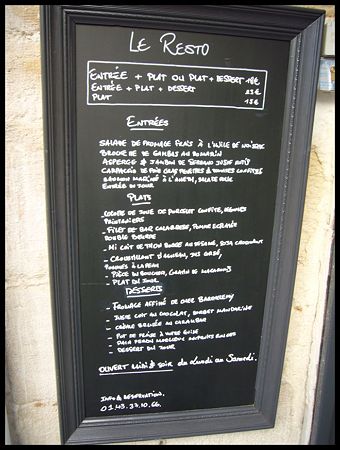 LE RESTO
ENTRÉE + PLAT OU PLAT + DESSERT 18€
ENTRÉE + PLAT + DESSERT 23€
PLAT 15€
ENTRÉES
SALADE DE FROMAGE FRAIS À L'HUILE DE NOISETTE
BROCHETTE DE GAMBAS AU ROMARIN
ASPERGE & JAMBON DE SERRANO
CARPACCIO DE FOIE GRAS & TOMATES CONFITES
MARINÉ À L'ANETH, SALADE
ENTRÉE DU JOUR
PLATS
- COCOTTE DE JOUE DE PORCELET CONFITE, LÉGUMES
PRINTANIERS
- FILET DE BAR CALABRESE, POMME ÉCRASÉE
DOUBLE BEURRE
- MI CUIT DE THON ROUGE AU SÉSAME, SOJA CROQUANT
- CROUSTILLANT D'AGNEAU, JUS CORSÉ,
POMMES À LA PEAU
- PIÈCE DU BOUCHER, GRATIN DE MACARONIS
- PLAT DU JOUR
DESSERTS
- FROMAGE AFFINÉ DE CHEZ BARTHÉLEMY
- JUSTE CUIT AU CHOCOLAT, SORBET MANDARINE
- CRÈME BRULÉE AU CARAMBAR
- POT DE FRAISE À VOTRE GUISE
- DESSERT DU JOUR
OUVERT MIDI & SOIR DU LUNDI AU SAMEDI.
INFO & RÉSERVATION.
01.43.33.10.66.